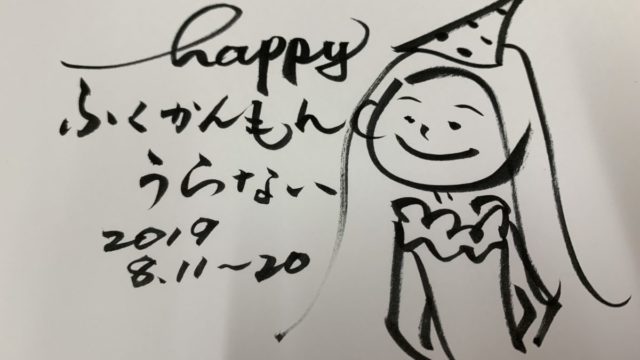 happy
ふくかんもん
うらない
2019
8.11〜20